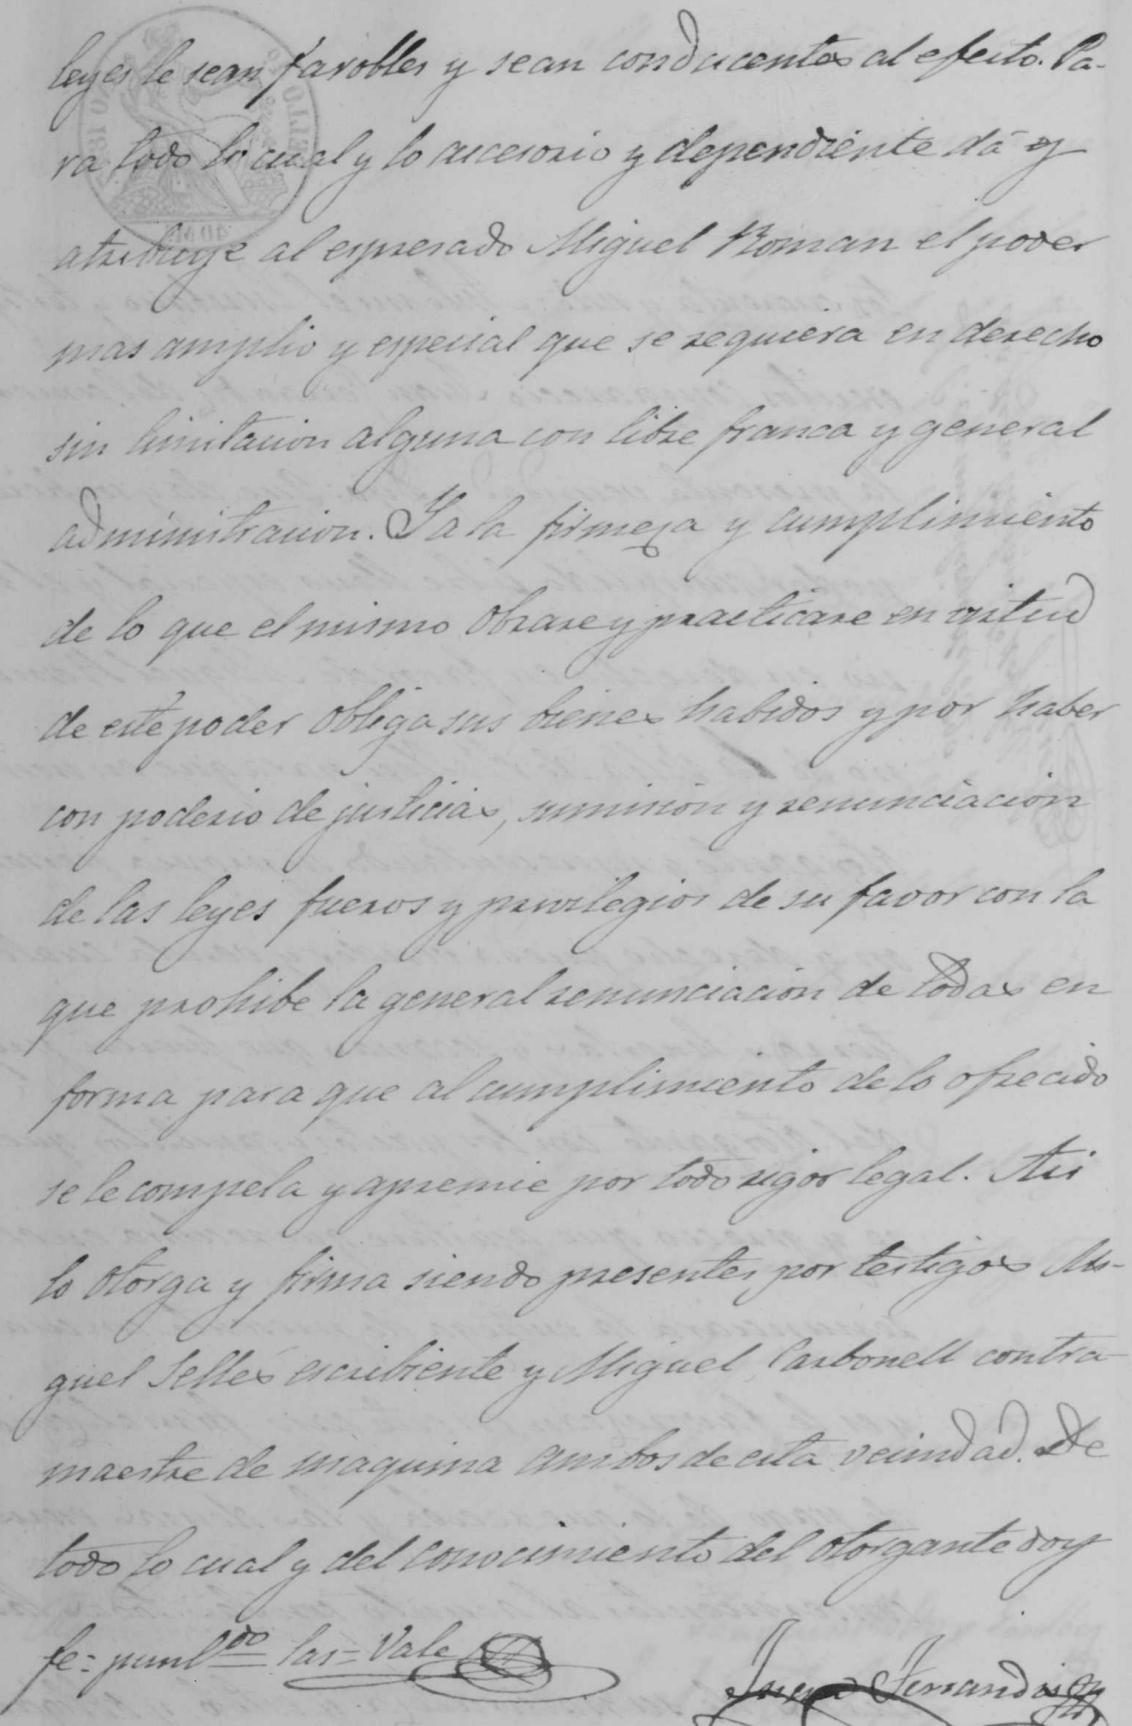 leyes le sean favobles y sean conducentes al efecto. Pa-
ra todo lo cual y lo accesorio y dependiente dá y
atribuye al espresado Miguel Roman el poder
mas amplio y especial que se requiera en derecho
sin limitacion alguna con libre franca y general
administracion. Y a la firmeza y cumplimiento
de lo que el mismo obrare y practicare en virtud
de este poder obliga sus bienes habidos y por haber
con poderio de justicias, sumision y renunciacion
de las leyes fueros y privilegios de su favor con la
que prohibe la general renunciacion de todas en
forma para que al cumplimiento de lo ofrecido
se le compela y apremie por todo rigor legal. Asi
lo otorga y firma siendo presentes por testigos Mi-
guel Sellés escribiente y Miguel Carbonell contra-
maestre de maquina ambos de esta vecindad. De
todo lo cual y del conocimiento del otorgante doy
fe = puntdo las = Vale
Ferrandis